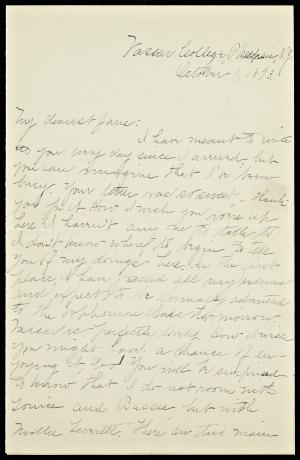 Vassar College,
October 1, 1893
My dearest Jane:
I have meant to write
to you every day since I arrived, but
you can imagine that I've been
busy. Your letter was so sweet, thank
you for it. How I wish you were up
here I haven't any one to talk to
I don't know where to begin to tell
you of my doings here. In the first
place, I have passed all my exams
and expect to be formally admitted
to the Sophomore class to-morrow.
Vassar is perfectly lovely. How I wish
you might have a chance of en-
joying it, too! You will be surprised
to know that I do not room with
Louise and Bassie, but with
Mollie Leverett. There are two main